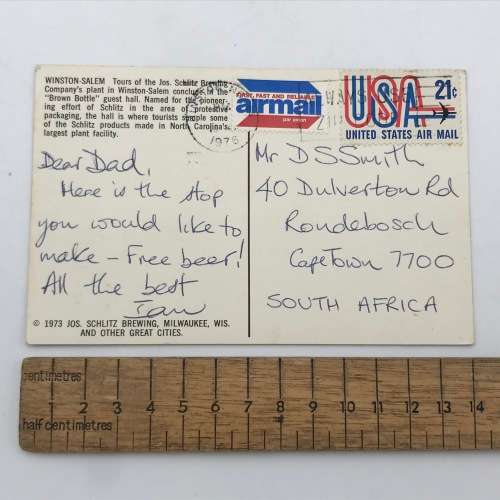 WINSTON-SALEM Tours of the Jos. Schlitz Brewing
Company's plant in Winston-Salem conclude in the
"Brown Bottle" guest hall. Named for the pioneer-
ing effort of Schlitz in the area of protective
packaging, the hall is where tourists sample some
of the Schlitz products made in North Carolina's
largest plant facility.
FIRST, FAST AND RELIABLE
airmail
par avion
1978
USA 21¢
UNITED STATES AIR MAIL
Dear Dad,
Here is the stop
you would like to
make - Free beer!
All the best
Ian
© 1973 JOS. SCHLITZ BREWING, MILWAUKEE, WIS.
AND OTHER GREAT CITIES.
Mr D S Smith
40 Dulverton Rd
Rondebosch
Cape Town 7700
SOUTH AFRICA
centimetres
1 2 3 4 5 6 7 8 9 10 11 12 13 14
half centimetres